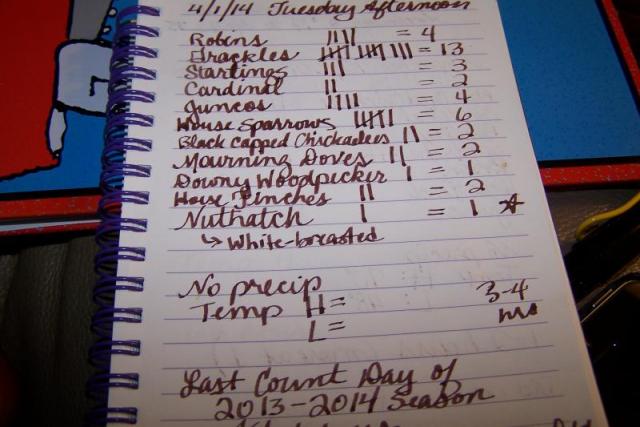 4/1/14 Tuesday Afternoon
Robins |||| = 4
Grackles |||| |||| ||| = 13
Starlings ||| = 3
Cardinal || = 2
Juncos |||| = 4
House Sparrows |||| | = 6
Black Capped Chickadees || = 2
Mourning Doves || = 2
Downy Woodpicker | = 1
House Finches || = 2
Nuthatch | = 1 ☆
↳ White-breasted
No precip 3-4
Temp H= hrs
L=
Last Count Day of
2013-2014 Season